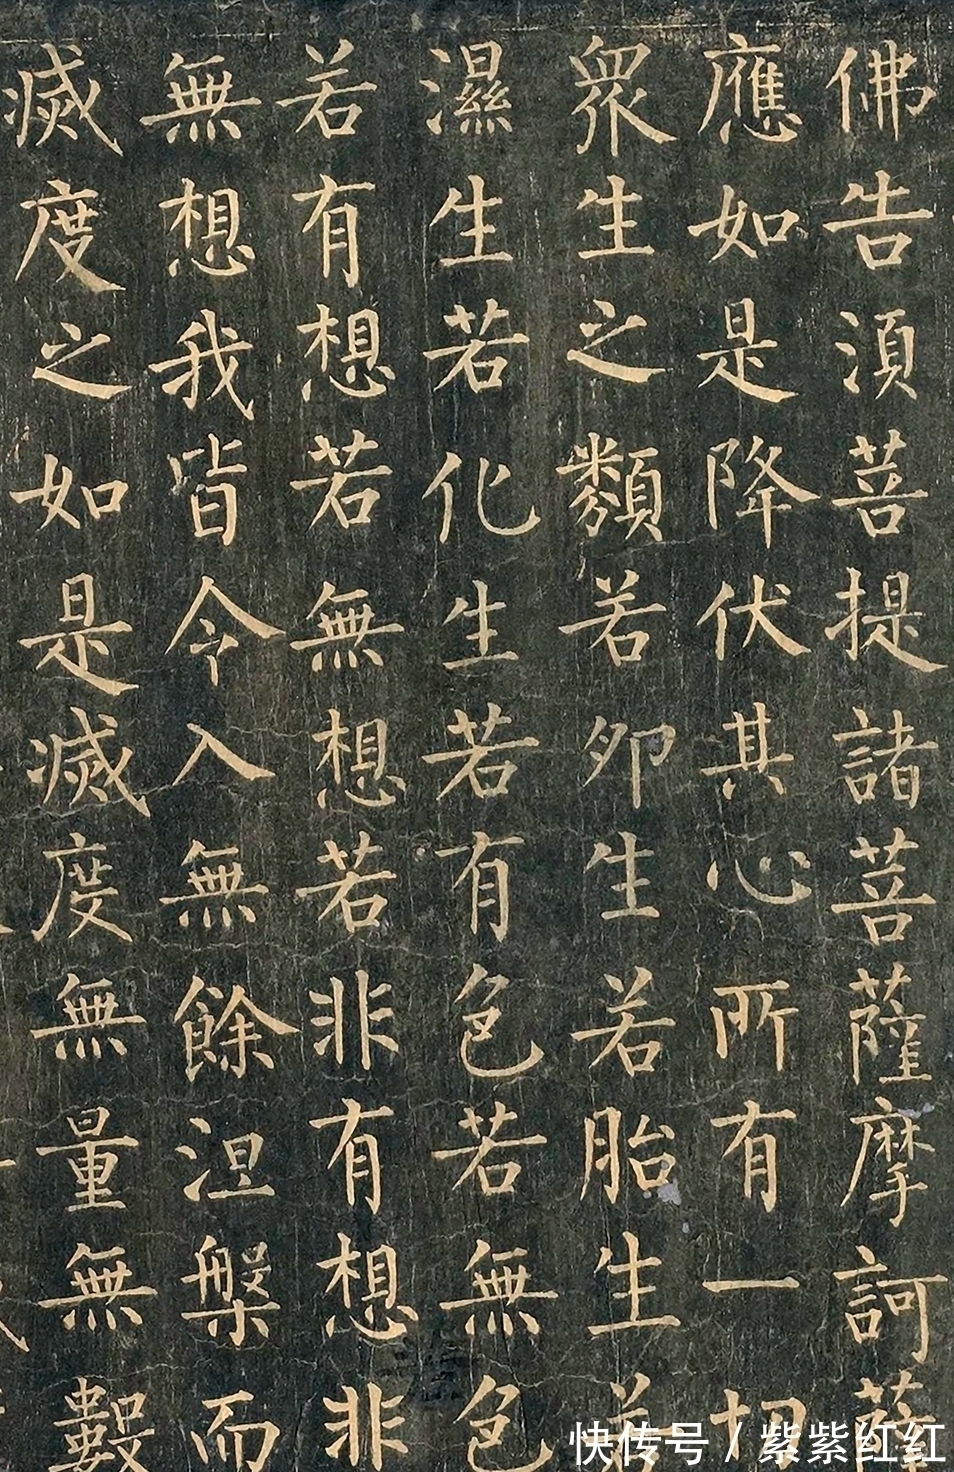 佛告湏菩提諸菩薩摩訶薩
應如是降伏其心所有一切
衆生之類若卵生若胎生若
濕生若化生若有色若無色
若有想若無想若非有想非
無想我皆令入無餘涅槃而
滅度之如是滅度無量無數
快传号 / 紫紫红红